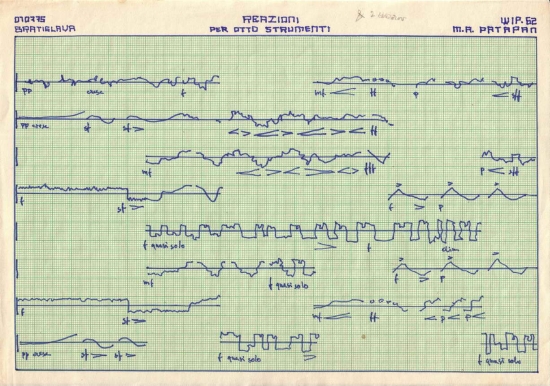 010775 REAZIONI WIP. 62
BRATISLAVA PER OTTO STRUMENTI M.R. PATAPAN
pp cresc f mf ff p sff
pp cresc sf sf ff
mf fff p sff
f sf f p
f quasi solo f
mf f quasi solo f p
f sf mf ff p p
pp cresc sf sf f quasi solo f quasi solo